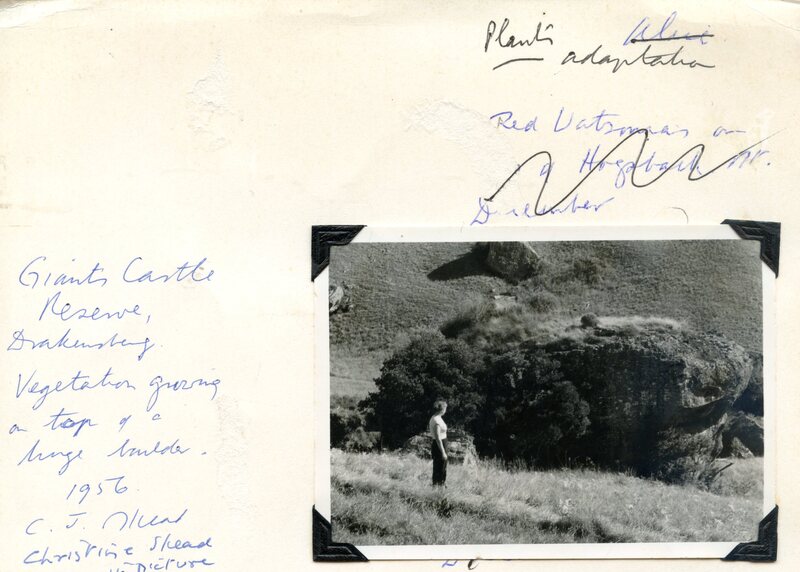 Plants Aloei
adaptation
Red Watsonias on
of Hogsback Mt.
December
Giants Castle
Reserve,
Drakensberg.
Vegetation growing
on top of a
huge boulder.
1956
C. J. Skead
Christine Skead
in picture